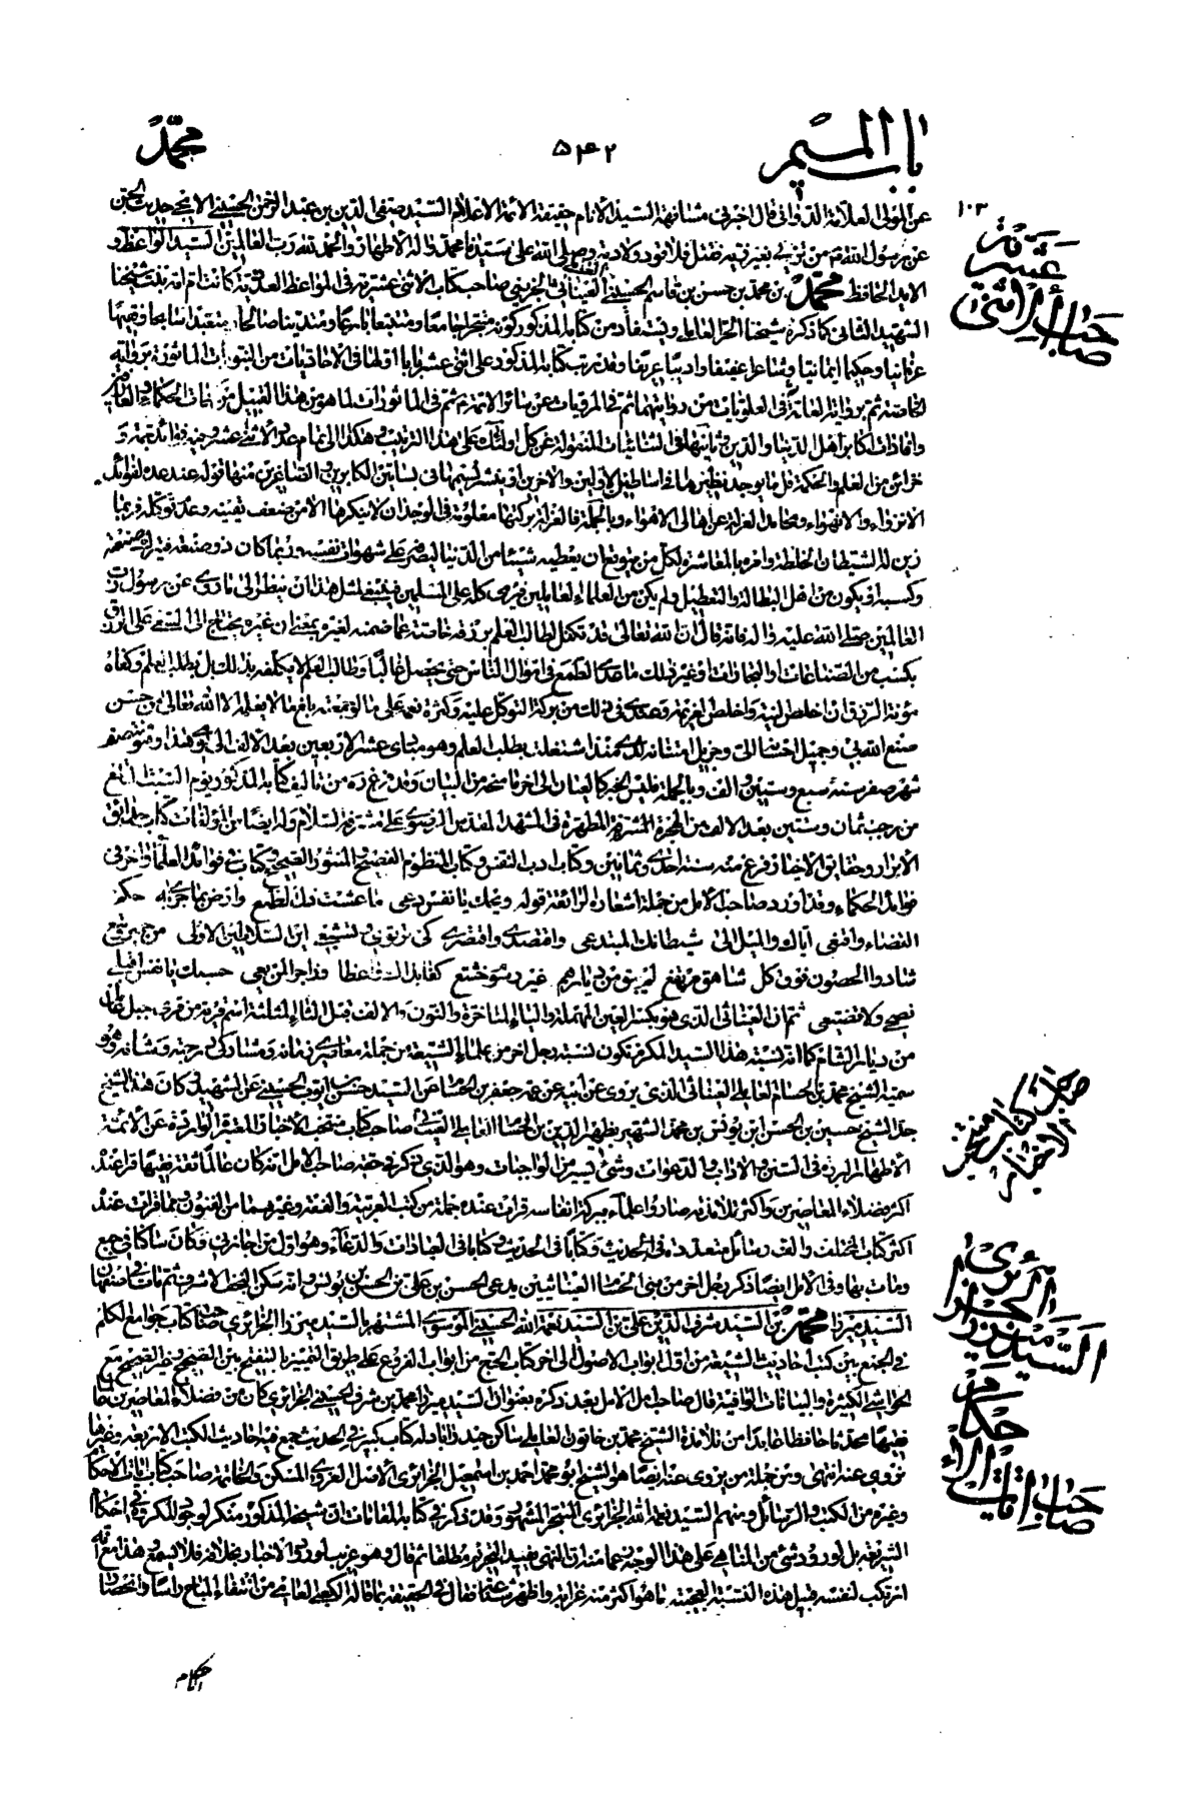 باب الميم
٥٤٢
محمد
١٠٣
عن المولى العلامة الدواني قال اخبرني مشافهة السيد الأنام حقيقة الأئمة الاعلام السيد صفي الدين بن عبد الرحمن الحسيني الايجي حديث الجن
عن رسول الله من تزيى بغير زيه فقتل فلا قود ولا دية وصلى الله على سيدنا محمد وآله الأطهار والحمد لله رب العالمين السيد الواعظ و
الحافظ محمد بن محمد بن حسن بن قاسم الحسيني العيناثي الجزيني صاحب كتاب الاثنى عشرية في المواعظ العددية كانت ام امه بنت شيخنا
الشهيد الثاني كما ذكره شيخنا الحر العاملي ويستفاد من كتابه المذكور كونه متبحرا جامعا ومتتبعا بارعا ومتدينا صالحا
وحكيما ايمانيا وشاعرا عفيفا واديبا عريفا وقد رتب كتابه المذكور على اثنى عشر بابا اولها في الاحاديات من النبويات المأثورة برواية
الخاصة ثم برواية العامة ثم في العلويات من روايتهما ثم في المرويات عن سائر الائمة ثم في المأثورات لما هو من هذا القبيل من الحكماء
وافادات اكابر اهل الدنيا والدين وثانيها في الثنائيات المنقولة عن كل اولئك على هذا الترتيب وهكذا الى تمام عدد الاثنى عشر وفيه فوائد جمة و
خزائن من العلم والحكمة قل ما يوجد نظيرها في اساطيل الاولين والاخرين منها قوله عند عده لفوائد
الانزواء وبالجملة فالعزلة بركتها معلومة في الوجدان لا ينكرها الا من ضعف يقينه وعدم توكله فربما
زين له الشيطان الخلطة وامره بالمعاشرة لكل من يتوقع ان يعطيه شيئا من الدنيا ليصرفه على شهوات نفسه وربما كان ذو صنعة فيترك صنعته
وكسبه او يكون من اهل البطالة والتعطيل ولم يكن من العلماء العاملين فيرمي كله على المسلمين فينبغي لمثل هذا ان ينظر الى ما روي عن رسول رب
العالمين صلى الله عليه وآله فانه قال ان الله تعالى قد تكفل لطالب العلم برزقه خاصة عما ضمنه لغيره بمعنى ان غيره يحتاج الى السعي على الرزق
بكسب من الصناعات والتجارات او غير ذلك حتى يحصل غالبا وطالب العلم لا يكلفه بذلك بل بطلب العلم وكفاه
مؤنة الرزق ان اخلص النية واخلص العزيمة وعندي في ذلك من بركة التوكل عليه وكثرة نعمه علي ما لو جمعته بلغ ما لا يعلمه الا الله تعالى وحسن
صنع الله بي وجميل احسانه الي وجزيل امتنانه لدي منذ اشتغلت بطلب العلم وهو مبتدأ عشر الاربعين بعد الالف الى يومي هذا وهو منتصف
شهر صفر سنة سبع وستين والف وبالجملة فليس الخبر كالعيان الى اخر ما سحره من البيان وقد فرغ ره من تأليف كتابه المذكور يوم السبت
من رجب ثمان وستين بعد الالف من الهجرة المطهرة في المشهد المقدس الرضوي على مشرفه السلام وله ايضا من المؤلفات كتاب حدائق
الابرار وحقائق الاخيار فرغ منه سنة احدى وثمانين وكتاب ادب النفس وكتاب المنظوم الفصيح والمنثور الصحيح وكتاب في فوائد العلماء واخر في
فوائد الحكماء وقد اورد صاحب الأمل من جملة اشعاره الرائقة قوله ويحك يا نفس دعي ما عشت ذل الطمع وارض بما جرى به حكم
القضاء واقنعي اياك والميل الى شيطانك المبتدع واقتصدي واقتصري كي ترتوي وتشبعي اين السلاطين الاولى من حمير وتبع
شادوا الحصون فوق كل شاهق مرتفع لم يبق من ديارهم غير رسوم خشع كفى بذاك واعظا وزاجرا لمن يعي حسبك يا نفس اقبلي
نصحي ولا تضيعي ثم ان العيناثي الذي هو بكسر العين المهملة والياء المتأخرة والنون والالف قبل الثاء المثلثة اسم قرية من قرى جبل عامل
من ديار الشام كما انه نسبة هذا السيد المكرم تكون نسبة رجل اخر من علماء الشيعة من جملة معاصري زمانه ومشاركي درجته وشانه وهو
سميه الشيخ محمد بن الحسام العاملي العيناثي الذي يروي عن ابيه عن عمه جعفر بن الحسام عن السيد حسن بن ايوب الحسيني عن الشهيد وكان هذا الشيخ
جد الشيخ حسين بن الحسن ابن يونس بن محمد الشهير بظهير الدين بن الحسام العاملي العيناثي صاحب كتاب منتخب الأخبار المعتبرة الواردة عن الأئمة
الأطهار البررة في السنن والاداب والدعوات وشيء يسير من الواجبات وهو الذي ذكر في حقه صاحب الامل انه كان عالما ثقة فقيها قرأ عنده
اكثر فضلاء المعاصرين واكثر تلامذته صاروا علماء ببركة انفاسه قرأت عنده جملة من كتب العربية والفقه وغيرهما من الفنون ومما قرأت عنده
اكثر كتاب المختلف والف رسائل متعددة في الحديث وكتابا في الحديث وكتابا في العبادات والدعاء وهو اول من اجازني وكان ساكنا في جبع
ومات بها وفي الأمل ايضا ذكر رجل اخر من بني الحسام العيناثيين يدعى الحسن بن علي بن الحسن بن يونس وانه سكن النجف الاشرف ثم مات في اصفهان
السيد ميرزا محمد بن السيد شرف الدين علي بن السيد نعمة الله الحسيني الموسوي المشتهر بالسيد ميرزا الجزائري صاحب كتاب جوامع الكلم
في الجمع بين كتب احاديث الشيعة من اول ابواب الاصول الى اخر كتاب الحج من ابواب الفروع على طريق التمييز بالتفتيح بين الصحيح وغير الصحيح مع
الحواشي الكثيرة والبيانات الوافية قال صاحب امل الامل بعد ذكره بعنوان السيد ميرزا محمد بن شرف الحسيني الجزائري كان من فضلاء المعاصرين عالما
فقيها محدثا حافظا عابدا من تلامذة الشيخ محمد بن خاتون العاملي ساكن حيدرآباد له كتاب كبير في الحديث جمع فيه احاديث الكتب الاربعة وغيرها
نروي عنه انتهى ومن جملة من يروي عنه ايضا هو الشيخ ابو محمد احمد بن اسمعيل الجزائري الأصل الغروي المسكن والخاتمة صاحب كتاب آيات الاحكام
وغيره من الكتب والرسائل ومنهم السيد نعمة الله الجزائري المتبحر المشهور وقد ذكر في كتابه المقامات ان شيخه المذكور منكر لوجود المكروه في احكام
الشريعة بل لورود شيء من المناهي على هذا الوجه زعما منه ان النهي يفيد التحريم مطلقا ثم قال وهو غريب لورود الاخبار بخلافه فلا تسمع هذا مع انه
ارتكب لنفسه قبيل هذه النسبة العجيبة ما هو اكثر منه غرابة واظهر شناعة فقال في الحقيقة بمقالة الكعبي العامي من انتفاء المباح رأسا وانحصار
احكام
صاحب الاثنى
عشرية
صاحب كتاب منتخب
الأخبار
السيد ميرزا
الجزائري
صاحب آيات الا
حكام